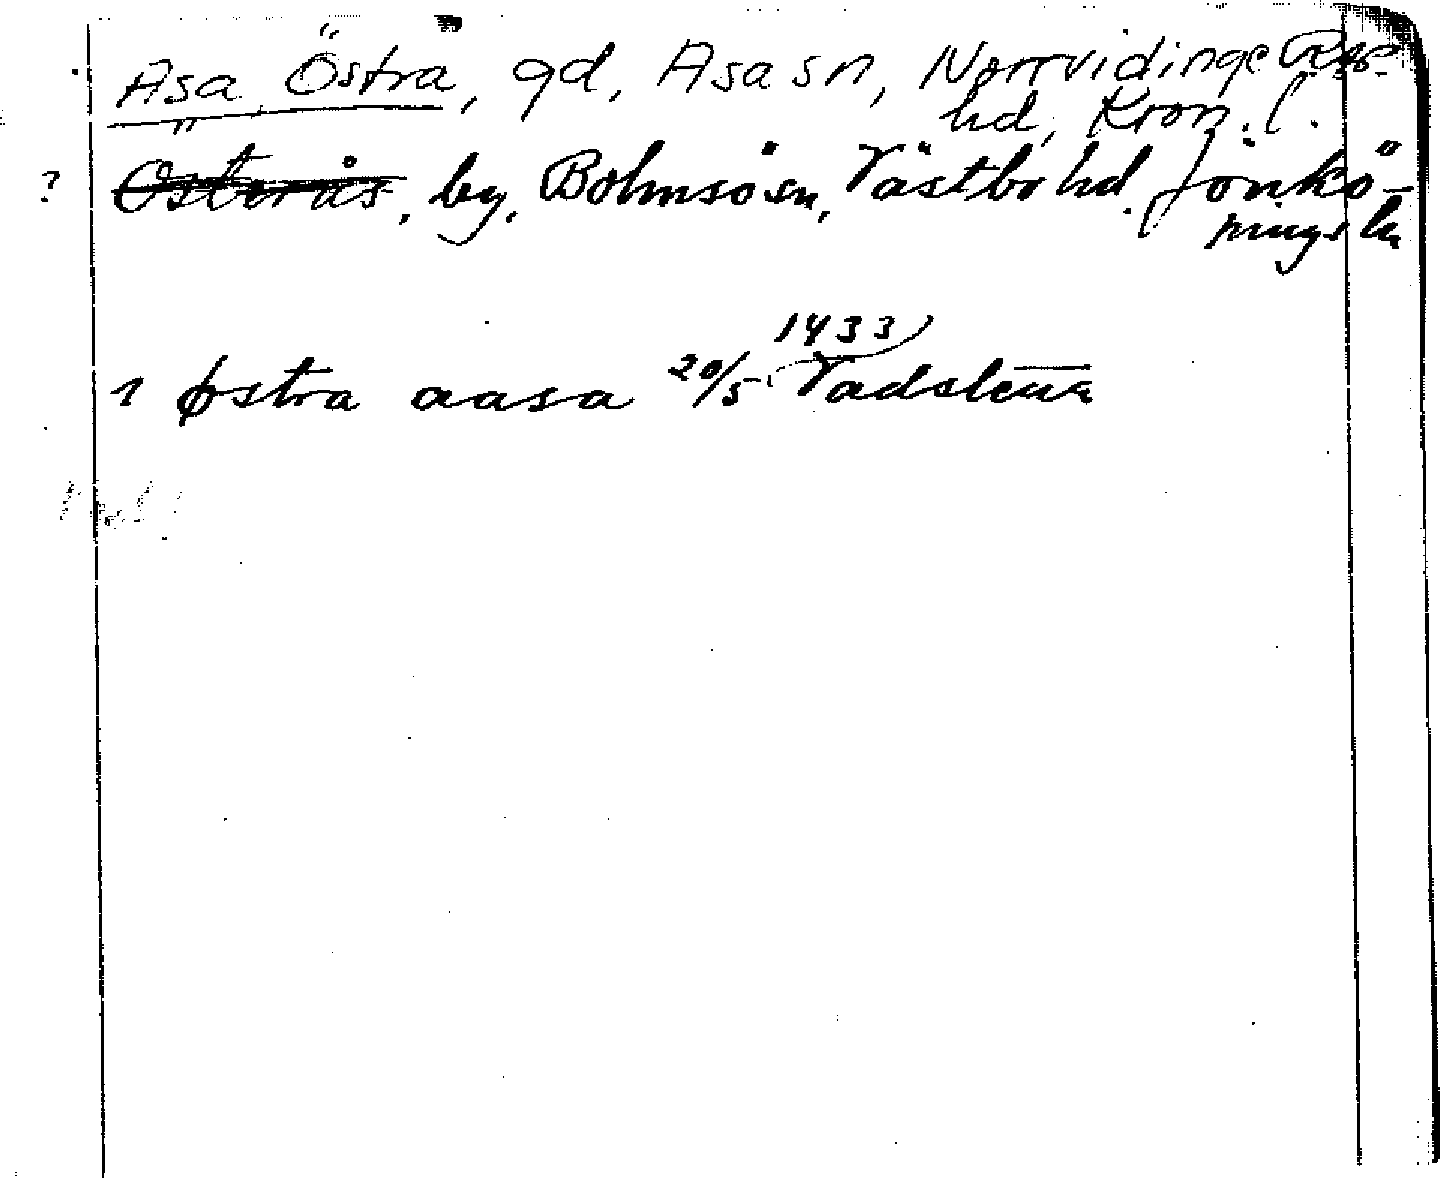 Asa Östra, gd, Asa sn, Norrvidinge
hd, Kron. l.
? Österås, by, Bolmsö sn, Västbo hd. Jönkö-
pings ln
1433
1 østra aasa 20/5 Vadstena